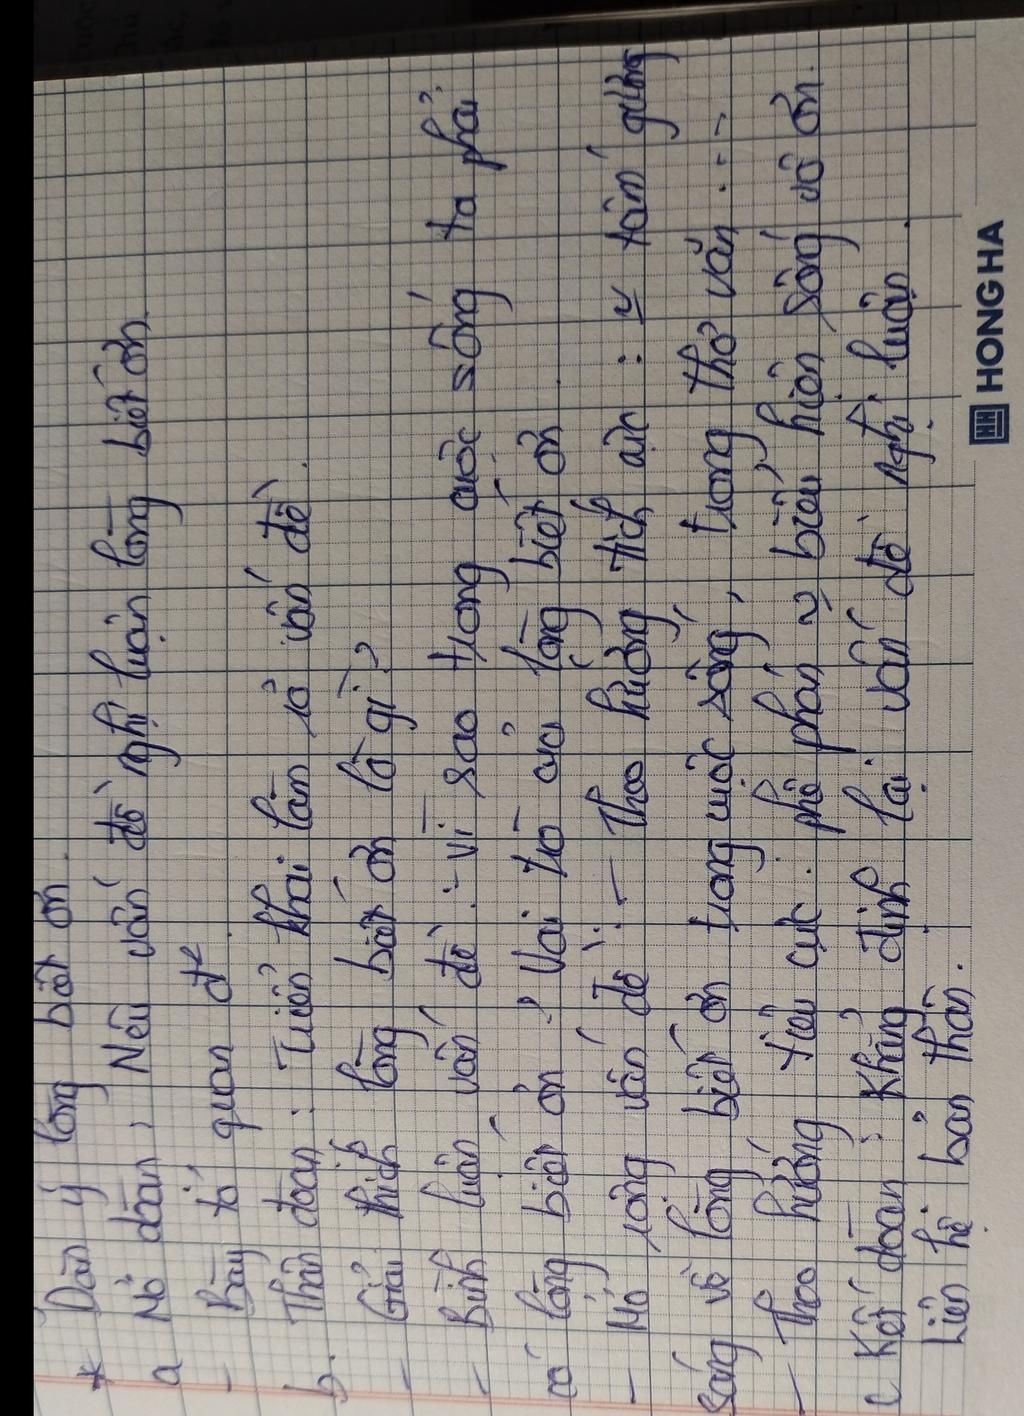 * Dàn ý lòng biết ơn.
a Mở đoạn: Nêu vấn đề nghị luận lòng biết ơn.
- Bày tỏ quan đ²
b. Thân đoạn: Triển khai làm rõ vấn đề.
- Giải thích lòng biết ơn là gì?
- Bình luận vấn đề: - Vì sao trong cuộc sống ta phải
có lòng biết ơn? Vai trò của lòng biết ơn
- Mở rộng vấn đề: - Theo hướng tích cực: ~ tấm gương
sáng về lòng biết ơn trong cuộc sống, trong thơ văn...
- Theo hướng tiêu cực: phê phán ~ biểu hiện sống vô ơn.
c Kết đoạn: Khẳng định lại vấn đề nghị luận.
Liên hệ bản thân.
HONG HA